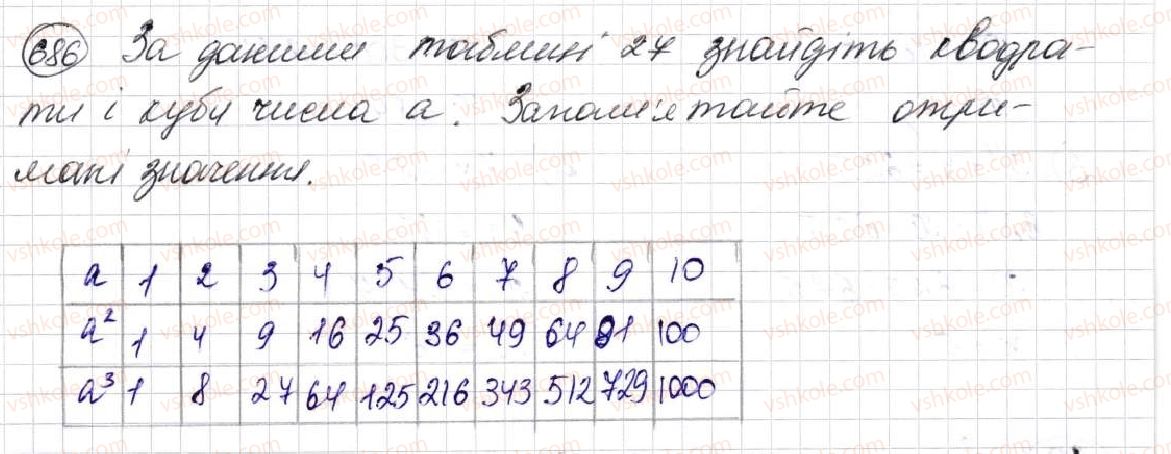 686 За даними таблиці 27 знайдіть квадра-
ти і куби числа а. Запам'ятайте отри-
мані значення.
a 1 2 3 4 5 6 7 8 9 10
a² 1 4 9 16 25 36 49 64 81 100
a³ 1 8 27 64 125 216 343 512 729 1000